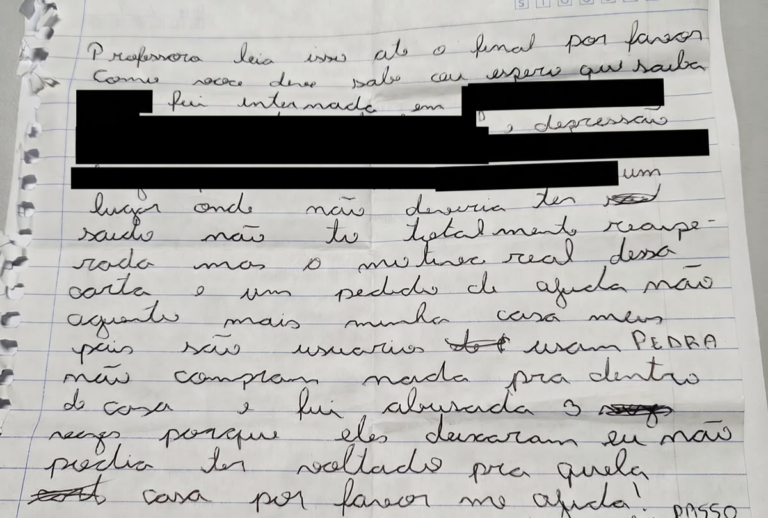 Professora leia isso até o final por favor
Como voce deve sabe eu espero que saiba
fui internada em
, depressão
um
lugar onde não deveria ter
saido não to totalmente recupe-
rada mas o motivo real dessa
carta e um pedido de ajuda não
aguento mais minha casa meus
pais são usuarios usam PEDRA
não compram nada pra dentro
de casa e fui abusada 3
vezes porque eles deixaram eu não
podia ter voltado pra quela
casa por favor me ajuda!
PASSO